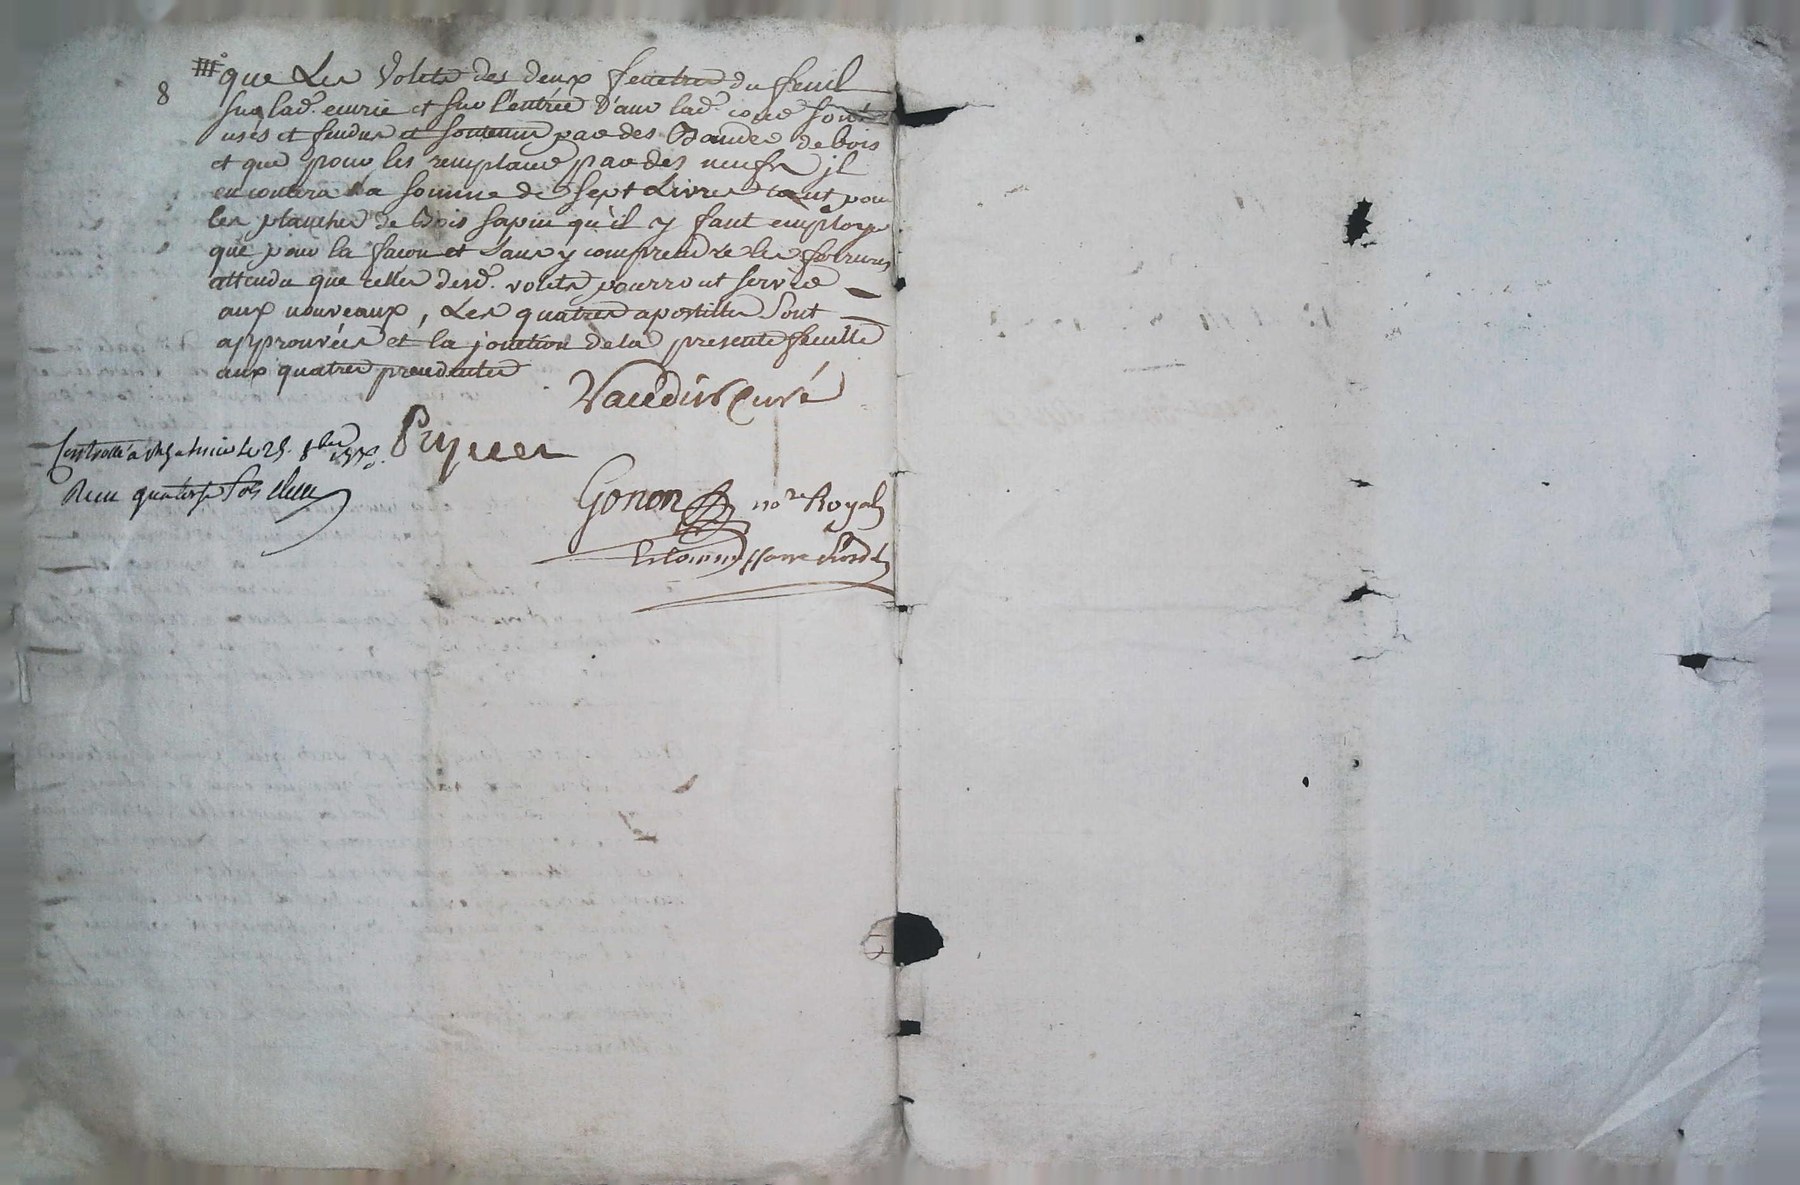 8
que Les Volets des deux fenetres du feuil
sur lad. ecurie et sur l'entrée dans lad. cour sont
usés et fendus et soutenus par des Bandes de bois
et que pour les remplacer par des neufs il
en coutera la somme de sept Livres tant pour
les planches de Bois sapin qu'il y faut employer
que pour la facon et sans y comprendre les ferrures
attendu que celles desd. volets pourront servir
aux nouveaux, Les quatres apostilles sont
approuvées et la jonction de la presente feuille
aux quatres precedentes
Vaudir Curé
Controllé a le 25. 8bre
Recu quatorze sols
Gonon nore Royal